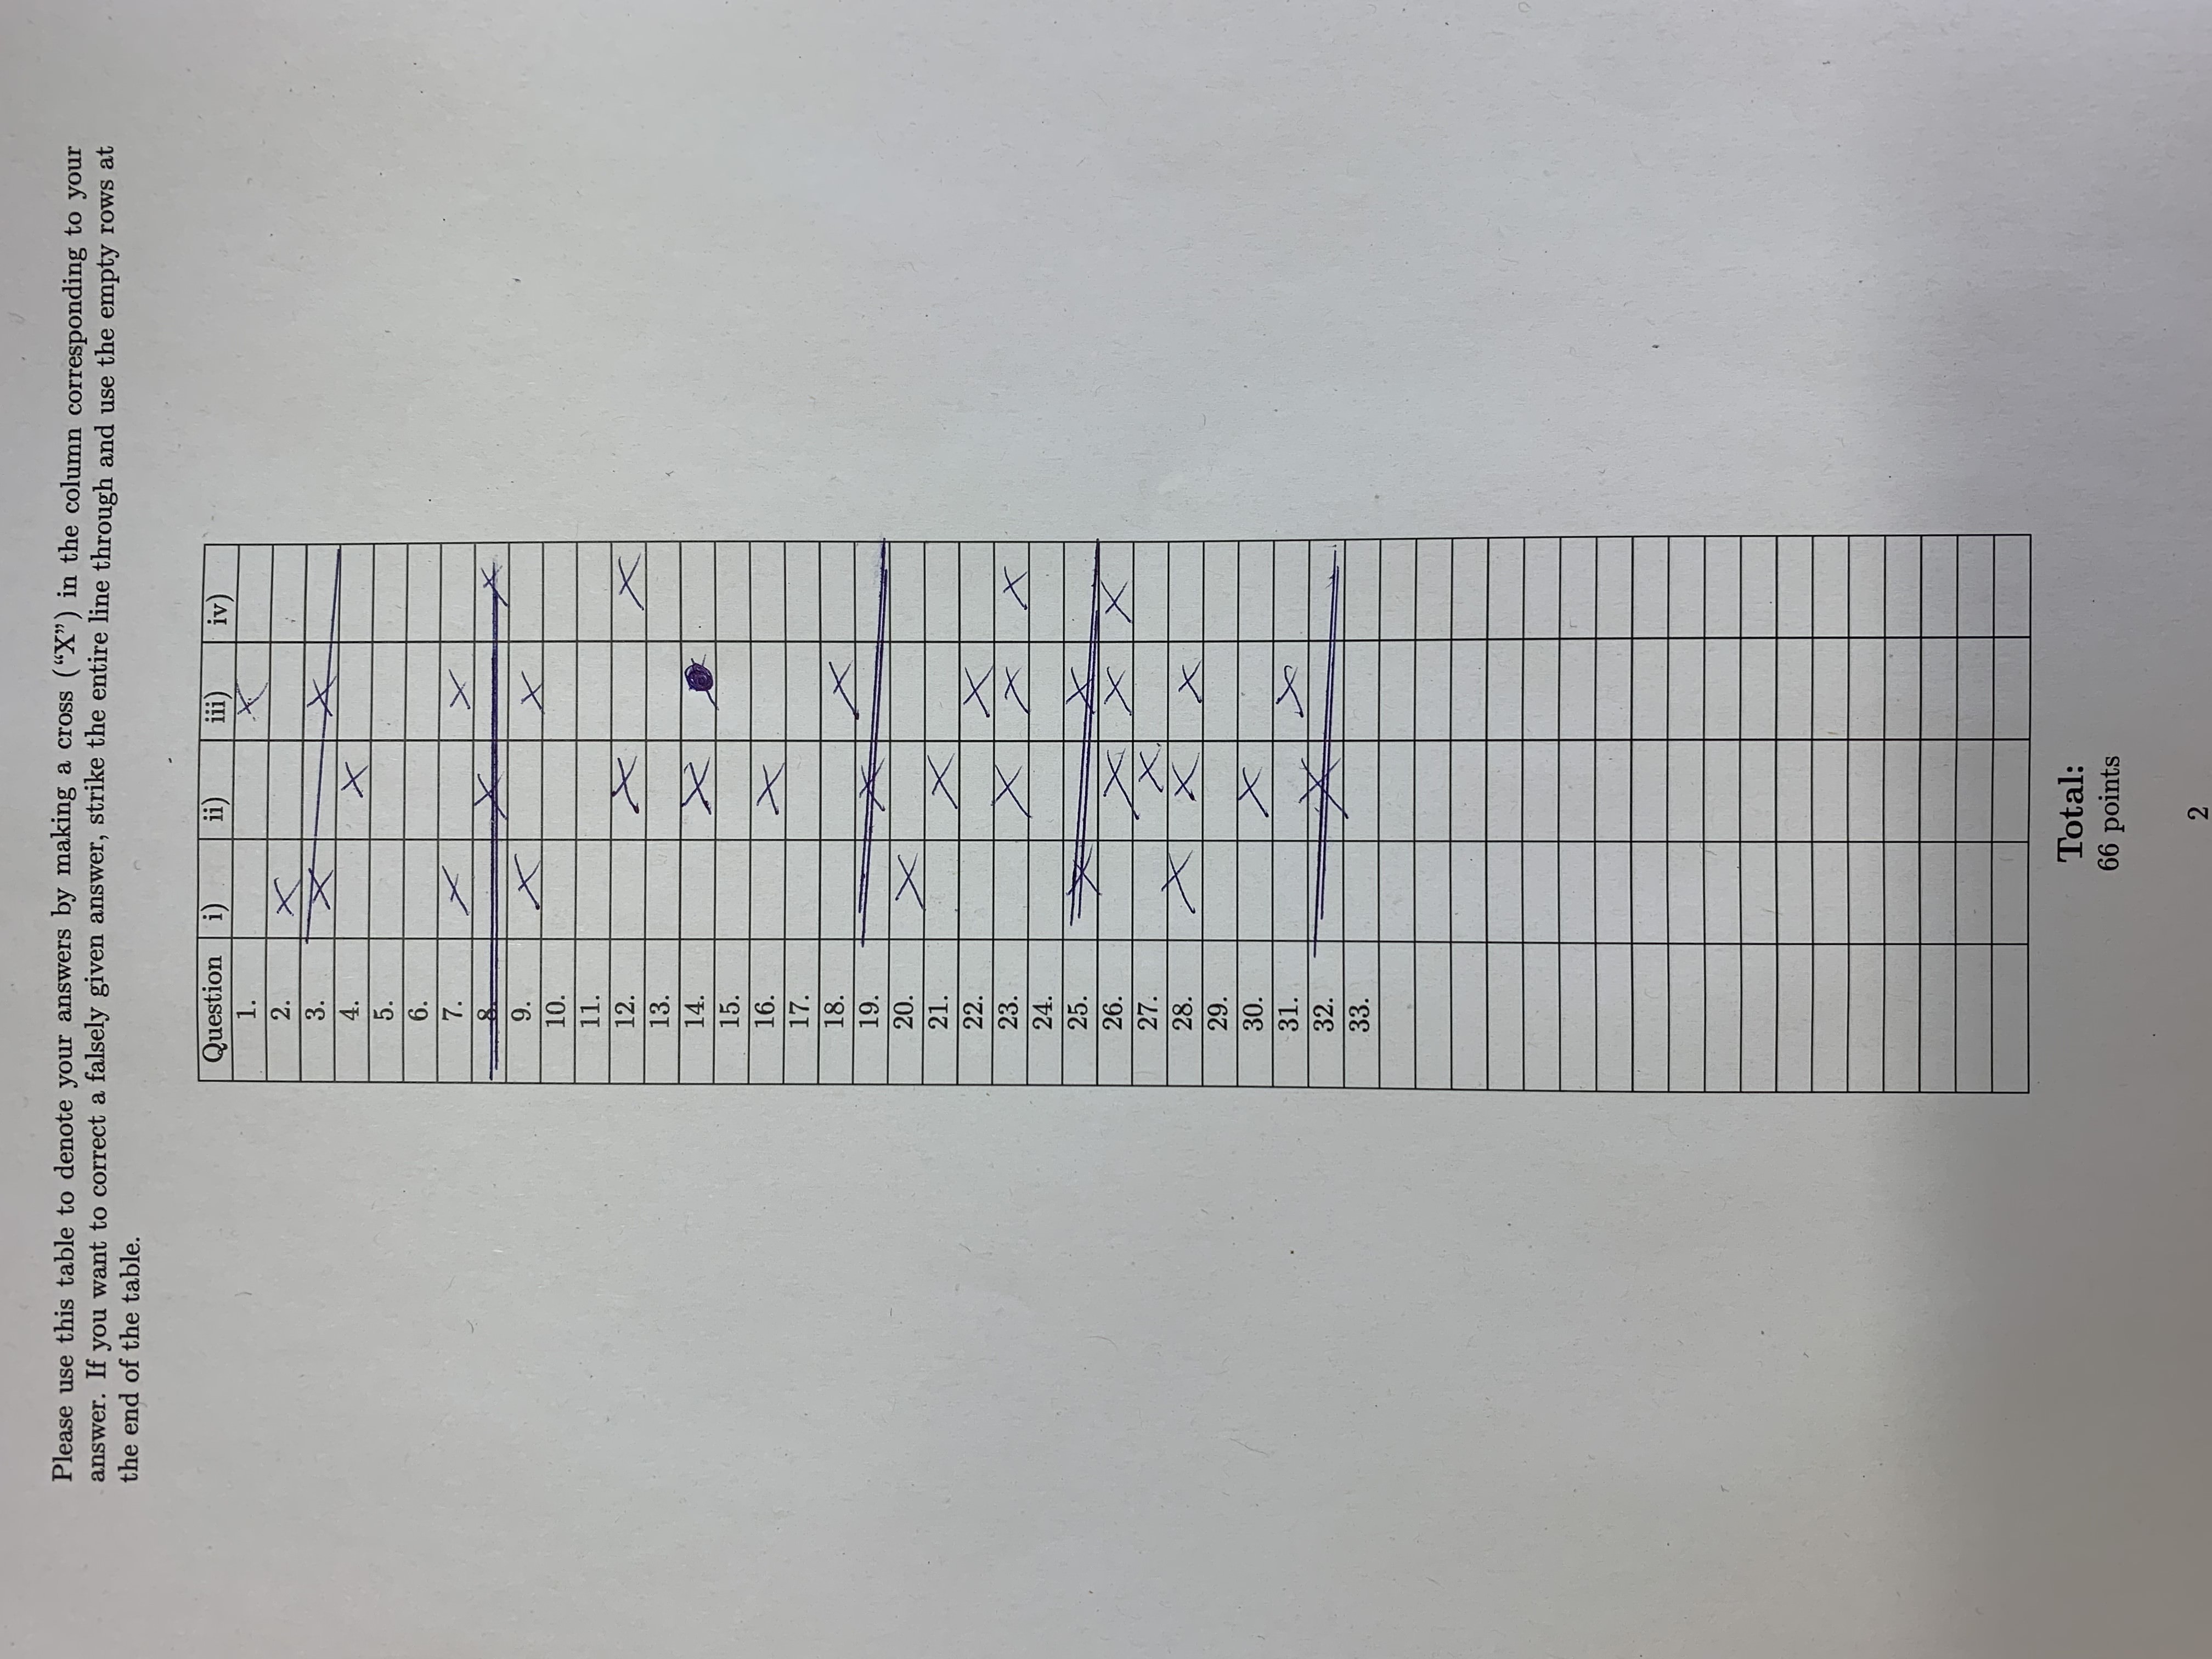 Please use this table to denote your answers by making a cross (“X”) in the column corresponding to your
answer. If you want to correct a falsely given answer, strike the entire line through and use the empty rows at
the end of the table.
Question i) ii) iii) iv)
1. X
2. X
3. X X
4. X
5.
6.
7. X X
8. X X
9. X X
10.
11.
12. X X
13.
14. X
15.
16. X
17.
18. X
19. X
20. X
21. X
22. X
23. X X X
24.
25. X X
26. X X X
27. X
28. X X X
29.
30. X
31. X
32. X
33.
Total:
66 points
2